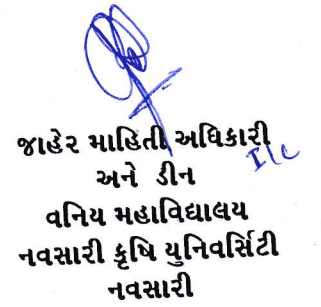 જાહેર માહિતી અધિકારી
I/C
અને ડીન
વનિય મહાવિદ્યાલય
નવસારી કૃષિ યુનિવર્સિટી
નવસારી